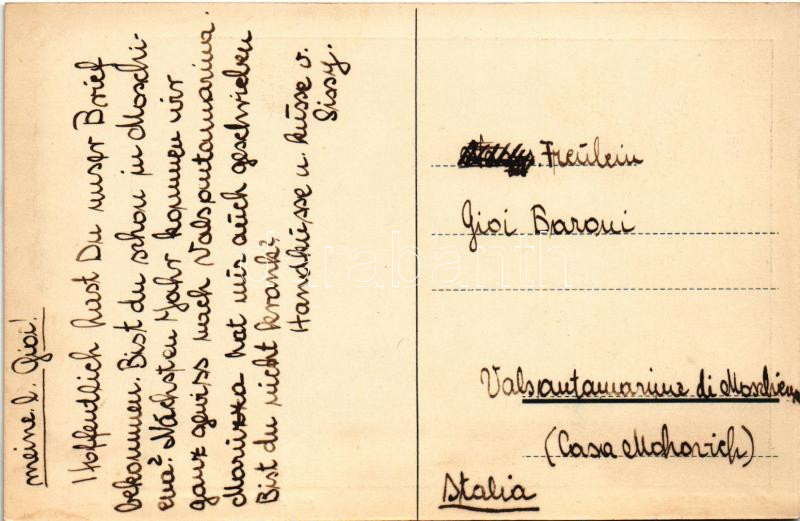 meine l. Gioi!
Hoffentlich hast Du unser Brief
bekommen. Bist du schon in Moschi-
ena? Nächsten Jahr kommen wir
ganz gewiss nach Valsantamarina.
Maruzka hat mir auch geschrieben
Bist du nicht krank?
Handküsse u. küsse v.
Sissy.
Freulein
Gioi Baroni
Valsantamarina di Moschiena
(Casa Mohovich)
Italia
darabanth